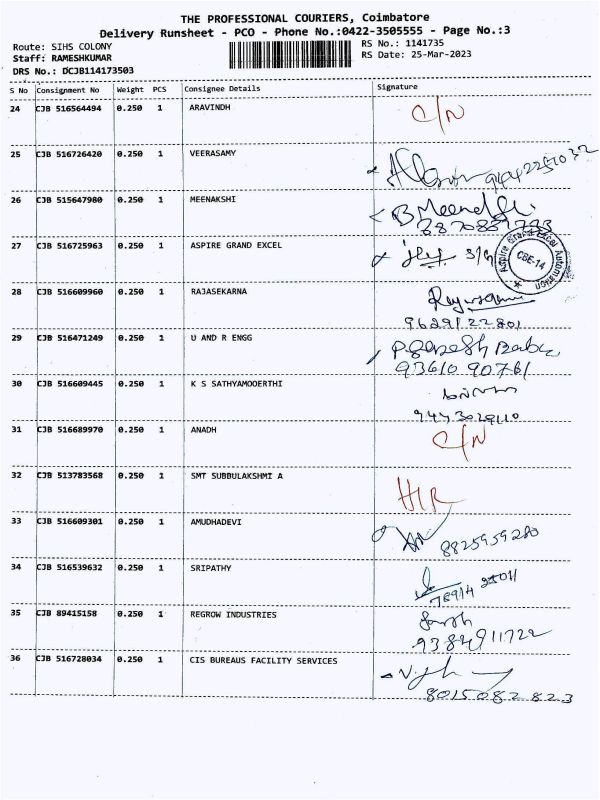 THE PROFESSIONAL COURIERS, Coimbatore
Delivery Runsheet - PCO - Phone No.:0422-3505555 - Page No.:3
Route: SIHS COLONY
RS No.: 1141735
Staff: RAMESHKUMAR
RS Date: 25-Mar-2023
DRS No.: DCJB114173503
S No Consignment No Weight PCS Consignee Details Signature
24 CJB 516564494 0.250 1 ARAVINDH C/N
25 CJB 516726420 0.250 1 VEERASAMY
26 CJB 515647980 0.250 1 MEENAKSHI B Meenakshi
27 CJB 516725963 0.250 1 ASPIRE GRAND EXCEL
Aspire Grand Excel Automation CBE-14
28 CJB 516609960 0.250 1 RAJASEKARNA
9629122801
29 CJB 516471249 0.250 1 U AND R ENGG P.Ganesh Babu
93610 90761
30 CJB 516609445 0.250 1 K S SATHYAMOOERTHI
9443029110
31 CJB 516689970 0.250 1 ANADH C/N
32 CJB 513783568 0.250 1 SMT SUBBULAKSHMI A HIR
33 CJB 516609301 0.250 1 AMUDHADEVI
8825959280
34 CJB 516539632 0.250 1 SRIPATHY
35 CJB 89415158 0.250 1 REGROW INDUSTRIES
36 CJB 516728034 0.250 1 CIS BUREAUS FACILITY SERVICES
8015082823